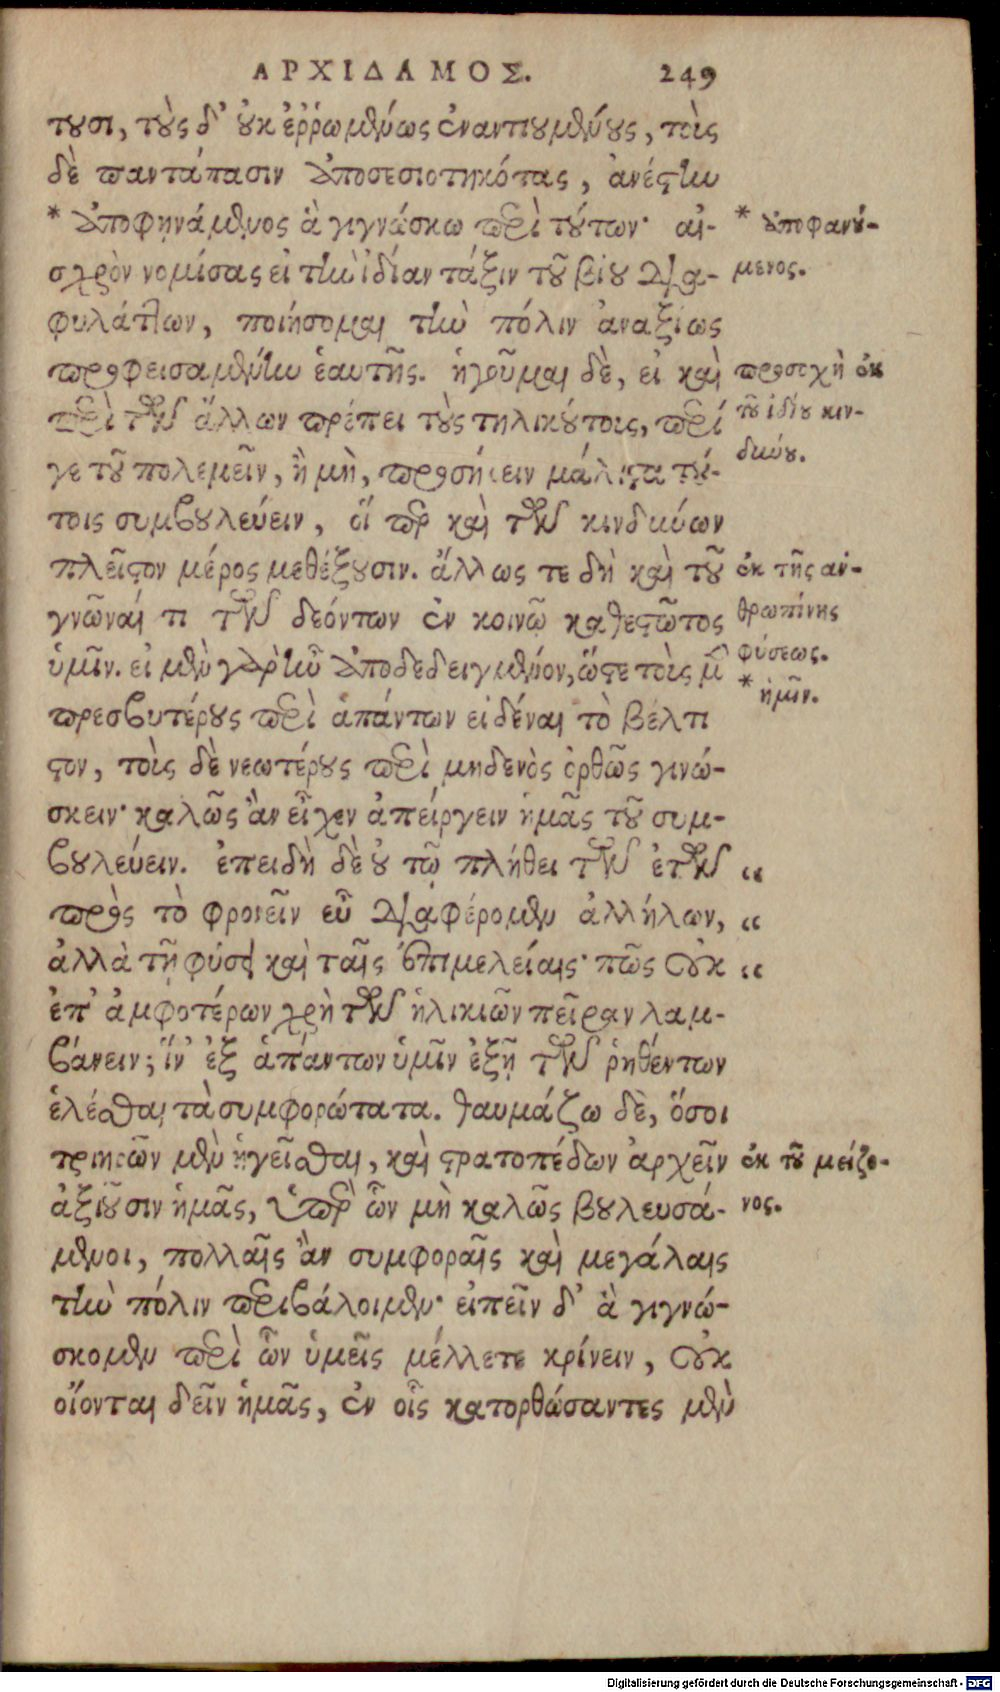 ΑΡΧΙΔΑΜΟΣ. 249
τουσι, τοὺς δ' οὐκ ἐῤῥωμένως ἐναντιουμένους, τοὺς
δὲ παντάπασιν ἀποσεσιωπηκότας, ἀνέστην
* ἀποφηνάμενος ἃ γιγνώσκω περὶ τούτων· αἰ-
σχρὸν νομίσας εἰ τὴν ἰδίαν τάξιν τοῦ βίου δια-
φυλάττων, ποιήσομαι τὴν πόλιν ἀναξίως
προφεισαμένην ἑαυτῆς. ἡγοῦμαι δὲ, εἰ καὶ
περὶ τῶν ἄλλων πρέπει τοὺς τηλικούτοις, περί
γε τοῦ πολεμεῖν, ἢ μὴ, προσήκειν μάλιστα τού-
τοις συμβουλεύειν, οἵ περ καὶ τῶν κινδύνων
πλεῖστον μέρος μεθέξουσιν. ἄλλως τε δὴ καὶ τοῦ
γνῶναί τι τῶν δεόντων ἐν κοινῷ καθεστῶτος
ὑμῖν. εἰ μὲν γὰρ ἦν ἀποδεδειγμένον, ὥστε τοὺς μ
πρεσβυτέρους περὶ ἁπάντων εἰδέναι τὸ βέλτι
στον, τοὺς δὲ νεωτέρους περὶ μηδενὸς ὀρθῶς γινώ-
σκειν· καλῶς ἂν εἶχεν ἀπείργειν ἡμᾶς τοῦ συμ-
βουλεύειν. ἐπειδὴ δὲ οὐ τῷ πλήθει τῶν ἐτῶν
πρὸς τὸ φρονεῖν εὖ διαφέρομεν ἀλλήλων,
ἀλλὰ τῇ φύσει καὶ ταῖς ἐπιμελείαις· πῶς οὐκ
ἐπ' ἀμφοτέρων χρὴ τῶν ἡλικιῶν πεῖραν λαμ-
βάνειν; ἵν' ἐξ ἁπάντων ὑμῖν ἐξῇ τῶν ῥηθέντων
ἑλέσθαι τὰ συμφορώτατα. θαυμάζω δὲ, ὅσοι
τριηρῶν μὲν ἡγεῖσθαι, καὶ στρατοπέδων ἀρχεῖν
ἀξιοῦσιν ἡμᾶς, ὑπὲρ ὧν μὴ καλῶς βουλευσά-
μενοι, πολλαῖς ἂν συμφοραῖς καὶ μεγάλαις
τὴν πόλιν περιβάλοιμεν· εἰπεῖν δ' ἃ γιγνώ-
σκομεν περὶ ὧν ὑμεῖς μέλλετε κρίνειν, οὐκ
οἴονται δεῖν ἡμᾶς, ἐν οἷς κατορθώσαντες μὲν
* ἀποφανού-
μενος.
προσοχὴ ἐκ
τοῦ ἰδίου κιν-
δύνου.
ἐκ τῆς ἀν-
θρωπίνης
φύσεως.
* ἡμῖν.
“
“
“
ἐκ τοῦ μείζο-
νος.
Digitalisierung gefördert durch die Deutsche Forschungsgemeinschaft - DFG